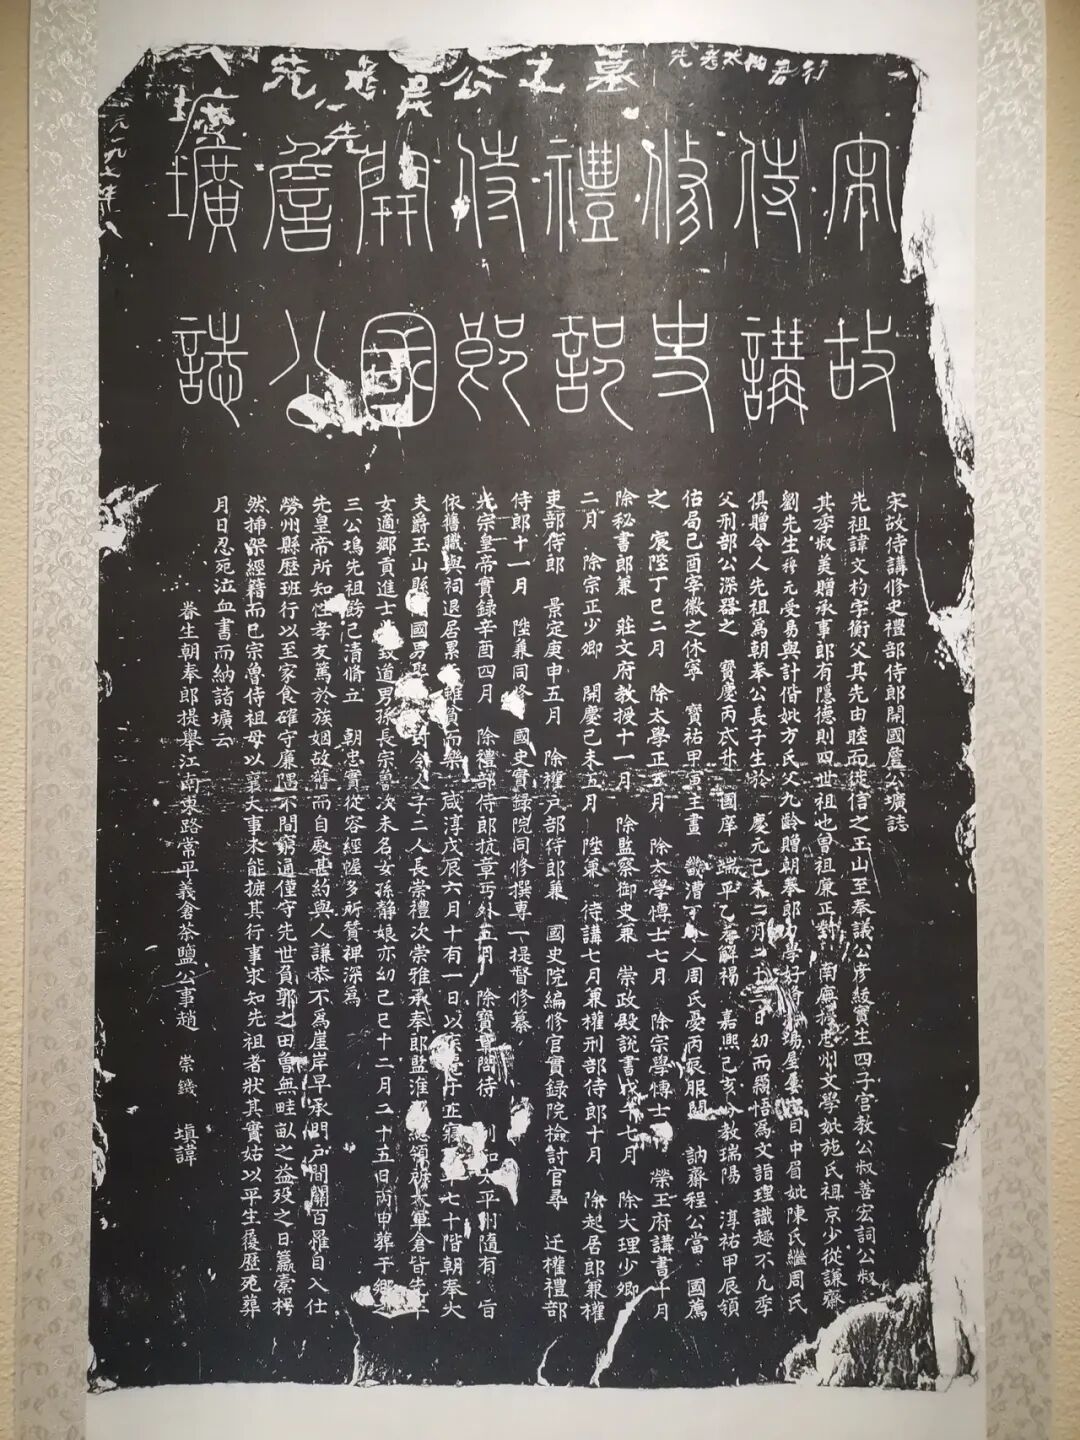 先考晨公之墓
先考太陶君行
壙
先
宋故
侍講
修史
禮部
侍郎
開國
詹公
壙誌
宋故侍講修史禮部侍郎開國詹公壙誌
先祖諱文杓字衡父其先由睦而徙信之玉山至奉議公彦綾實生四子宫教公叔善宏詞公叔
其季叔美贈承事郎有隱德則四世祖也曾祖廉正對 南廊 忠州文學妣施氏祖京少從謙齋
劉先生 元受易與計偕妣方氏父九齡贈朝奉郎 學好 場屋 自申眉妣陳氏繼周氏
俱贈令人先祖爲朝奉公長子生於 慶元己未二月二十二日幼而穎悟爲文詣理識趣不凡季
父刑部公深器之 寶慶丙戌升 國庠 端平乙 解褐 嘉熙己亥分教瑞陽 淳祐甲辰領
估局己酉宰徽之休寧 寶祐甲寅主畫 漕 令人周氏憂丙辰服闋 訥齋程公當 國薦
之 宸陛丁巳二月 除太學正五月 除太學博士七月 除宗學博士 榮王府講書十月
除秘書郎兼 莊文府教授十一月 除監察御史兼 崇政殿説書戊午七月 除大理少卿
二月 除宗正少卿 開慶己未五月 陞兼 侍講七月兼權刑部侍郎十月 除起居郎兼權
吏部侍郎 景定庚申五月 除權户部侍郎兼 國史院編修官實録院檢討官尋 迁權禮部
侍郎十一月 陞兼同修 國史實録院同修撰専一提督修纂
光宗皇帝實録辛酉四月 除禮部侍郎抗章丐外五月 除寶章閣待 知太平州隨有 旨
依舊職與祠退居累 貧而樂 咸淳戊辰六月十有一日以疾 于正寢 七十階朝奉大
夫爵玉山縣 國男娶 封令人子二人長崇禮次崇雅承奉郎監淮 總領所大軍倉皆先卒
女適鄉貢進士 致道男孫長宗魯次未名女孫静娘亦幼己巳十二月二十五日丙申葬于鄉之
三公塢先祖 己清脩立 朝忠實從容經幄多所贊裨深爲
先皇帝所知性孝友篤於族姻故舊而自處甚約與人謙恭不爲崖岸早承門户間關百罹自入仕
勞州縣歷班行以至家食確守廉隅不間窮通僅守先世負郭之田魯無畦畝之益殁之日籝橐枵
然揷架經籍而已宗魯侍祖母以襄大事未能摭其行事求知先祖者狀其實姑以平生履歷死葬
月日忍死泣血書而納諸壙云
眷生朝奉郎提舉江南東路常平義倉茶鹽公事趙 崇鐵 填諱